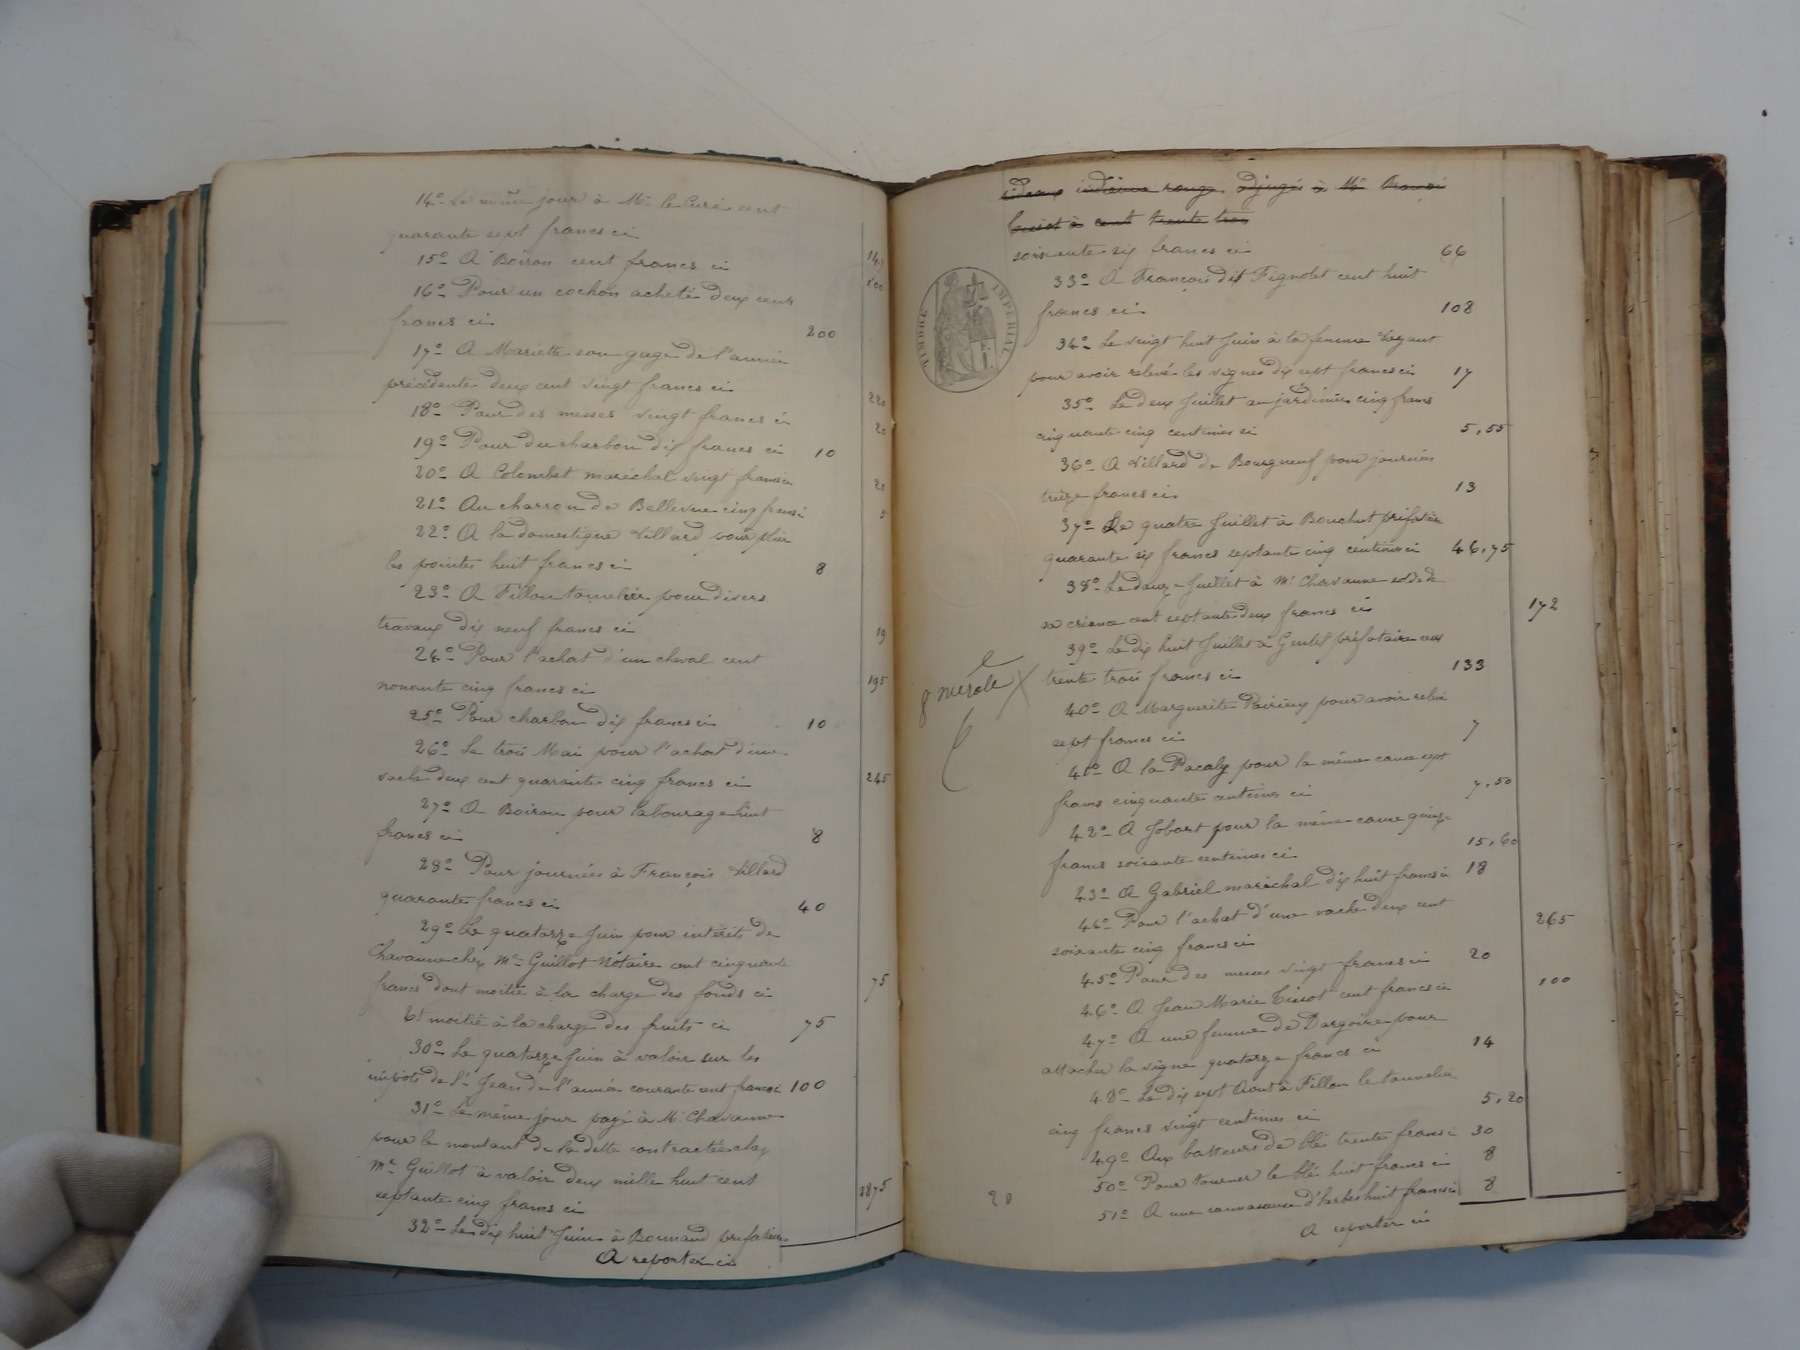 14° Le même jour à Mr le Curé cent
quarante sept francs ci 147
15° A Boiron cent francs ci 100
16° Pour un cochon acheté deux cents
francs ci 200
17° A Mariette son gage de l'année
précédente deux cent vingt francs ci 220
18° Pour des messes vingt francs ci 20
19° Pour du charbon dix francs ci 10
20° A Colombet maréchal vingt francs ci 20
21° Au charron de Bellevue cing francs ci 5
22° A la domestique Villard pour plier
les pointes huit francs ci 8
23° A Fillon tonnelier pour divers
travaux dix neuf francs ci 19
24° Pour l'achat d'un cheval cent
nonante cinq francs ci 195
25° Pour charbon dix francs ci 10
26° Le trois Mai pour l'achat d'une
vache deux cent quarante cinq francs ci 245
27° A Boiron pour labourage huit
francs ci 8
28° Pour journées à François Villard
quarante francs ci 40
29° Le quatorze Juin pour intérêts de
Chavanne chez Me Guillot Notaire cent cinquante
francs dont moitié à la charge des fonds ci 75
Et moitié à la charge des fruits ci 75
30° Le quatorze Juin à valoir sur les
impôts de St Jean de l'année courante cent francs ci 100
31° Le même jour payé à Mr Chavanne
pour le montant de la dette contractée chez
Me Guillot à valoir deux mille huit cent
septante cinq francs ci 2875
32° Le dix huit Juin à Bonnand prifataire
A reporter ci
rideaux indienne rouge adjugés à Mr François
à cent trente trois
soixante six francs ci 66
TIMBRE IMPÉRIAL
33° A François dit Fignolet cent huit
francs ci 108
34° Le vingt huit Juin à la femme Voyant
pour avoir relevé les vignes dix sept francs ci 17
35° Le deux Juillet au jardinier cinq francs
cinquante cinq centimes ci 5,55
36° A Villard de Bourgneuf pour journées
treize francs ci 13
37° Le quatre Juillet à Bouchut prifataire
quarante six francs septante cinq centimes ci 46,75
38° Le douze Juillet à Mr Chavanne solde de
sa créance cent septante deux francs ci 172
39° Le dix huit Juillet à Gentet prifataire cent
trente trois francs ci 133
40° A Marguerite Poirieux pour avoir relevé
sept francs ci 7
41° A la Pacaly pour la même cause sept
francs cinquante centimes ci 7,50
42° A Jobart pour la même cause quinze
francs soixante centimes ci 15,60
43° A Gabriel maréchal dix huit francs ci 18
44° Pour l'achat d'une vache deux cent
soixante cinq francs ci 265
45° Pour des messes vingt francs ci 20
46° A Jean Marie Tissot cent francs ci 100
47° A une femme de Dargoire pour
attacher la vigne quatorze francs ci 14
48° Le dix sept Août à Fillon le tonnelier
cinq francs vingt centimes ci 5,20
49° Aux batteurs de blé trente francs ci 30
50° Pour tourner le blé huit francs ci 8
51° A une connaisseuse d'herbes huit francs ci 8
20
A reporter ci